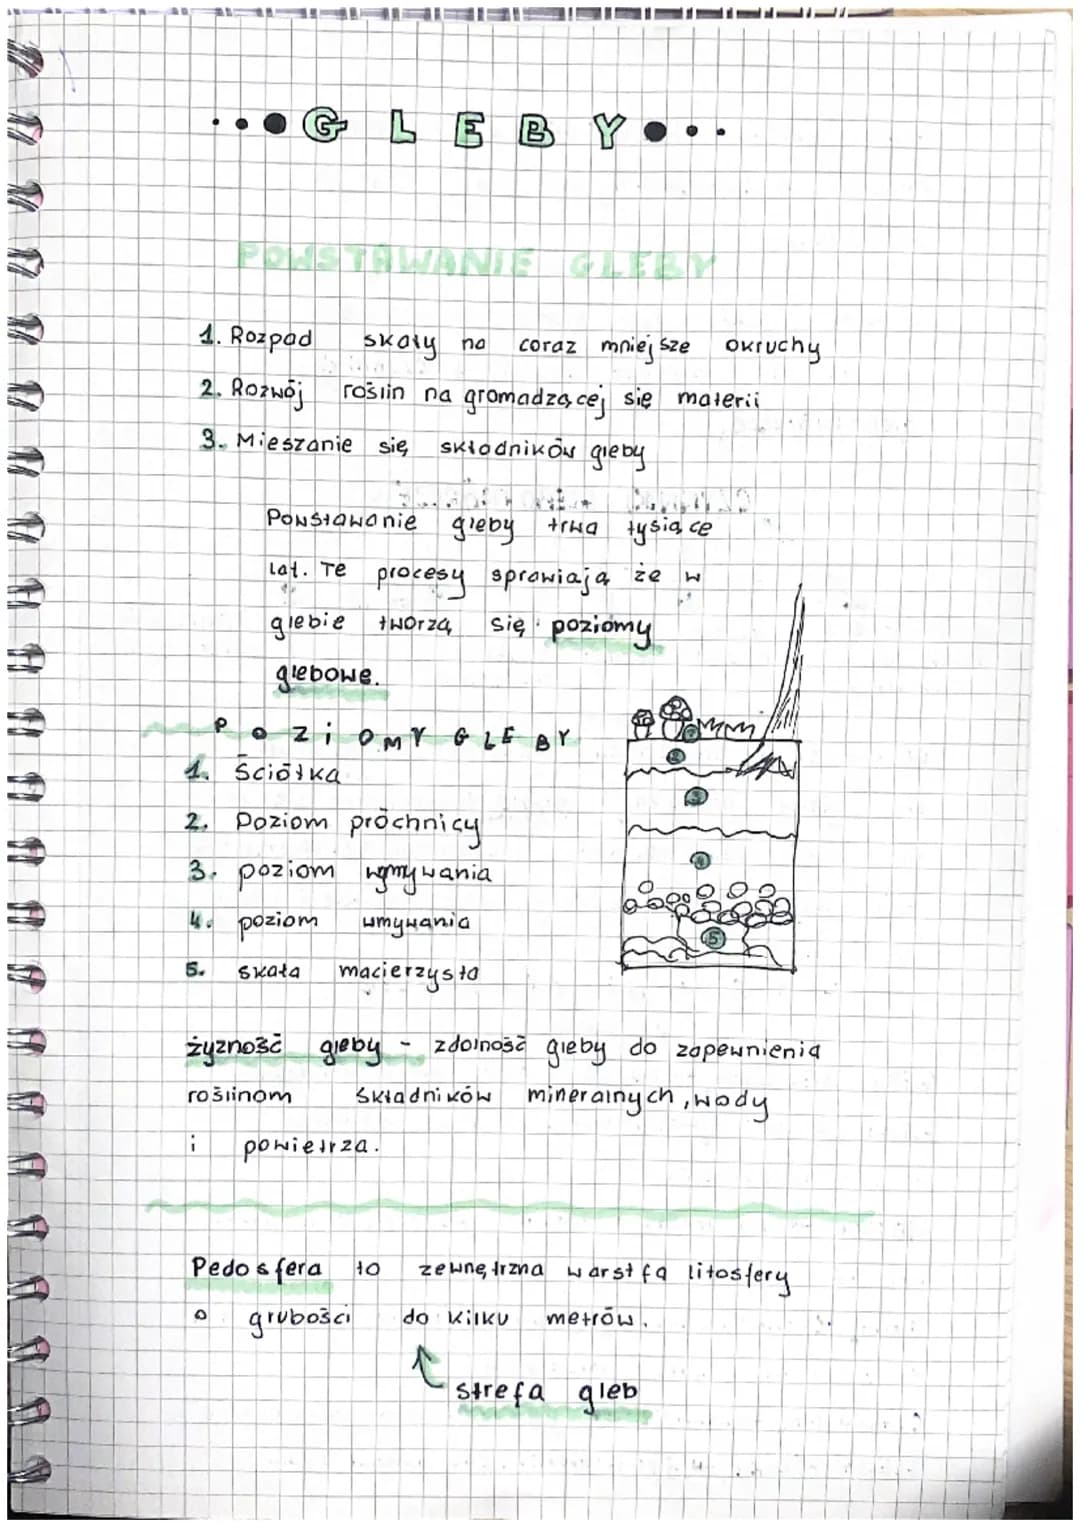 GLEBY
POWSTAWANIE GLEBY
1. Rozpad skały na coraz mniejsze okruchy
2. Rozwój roślin na gromadzącej się materii
3. Mieszanie się składników gleby
Powstawanie gleby trwa tysiące
lat. Te procesy sprawiają że w
glebie tworzą się poziomy
glebowe.
POZIOMY GLEBY
1. Ściółka
2. Poziom próchnicy
3. poziom wymywania
4. poziom wmywania
5. skała macierzysta
1
2
3
4
5
żyzność gleby - zdolność gleby do zapewnienia
roślinom składników mineralnych, wody
i powietrza.
Pedosfera to zewnętrzna warstfa litosfery
o grubości do kilku metrów.
strefa gleb